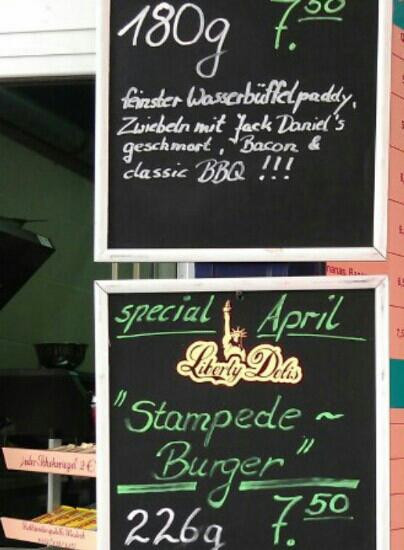 180g 7.50
feinster Wasserbüffelpaddy,
Zwiebeln mit Jack Daniel's
geschmort, Bacon &
classic BBQ !!!
special April
Liberty Delis
"Stampede ~
Burger"
226g 7.50
2€